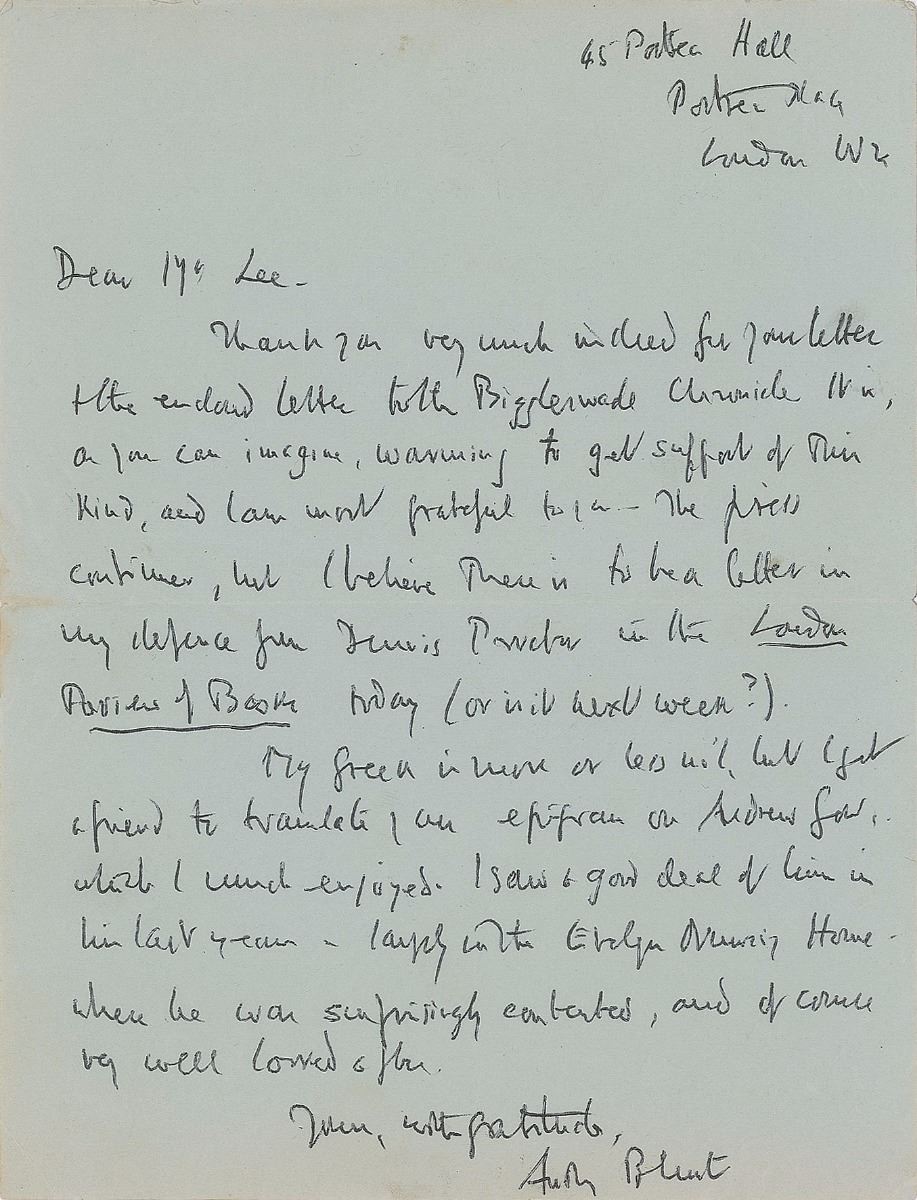 45 Portsea Hall
Portsea Place
London W2
Dear Mr Lee -
Thank you very much indeed for your letter
& the enclosed letter to the Biggleswade Chronicle It is,
as you can imagine, warming to get support of this
kind, and I am most grateful to you - The press
continues, but I believe there is to be a letter in
my defence from Dennis Proctor in the London
Review of Books today (or is it next week?).
My Greek is more or less nil, but I got
a friend to translate your epigram on Andrew Gow,
which I much enjoyed. I saw a good deal of him in
his last years - largely in the Evelyn Nursing Home -
where he was surprisingly contented, and of course
very well looked after.
Yours, with gratitude,
Anthony Blunt